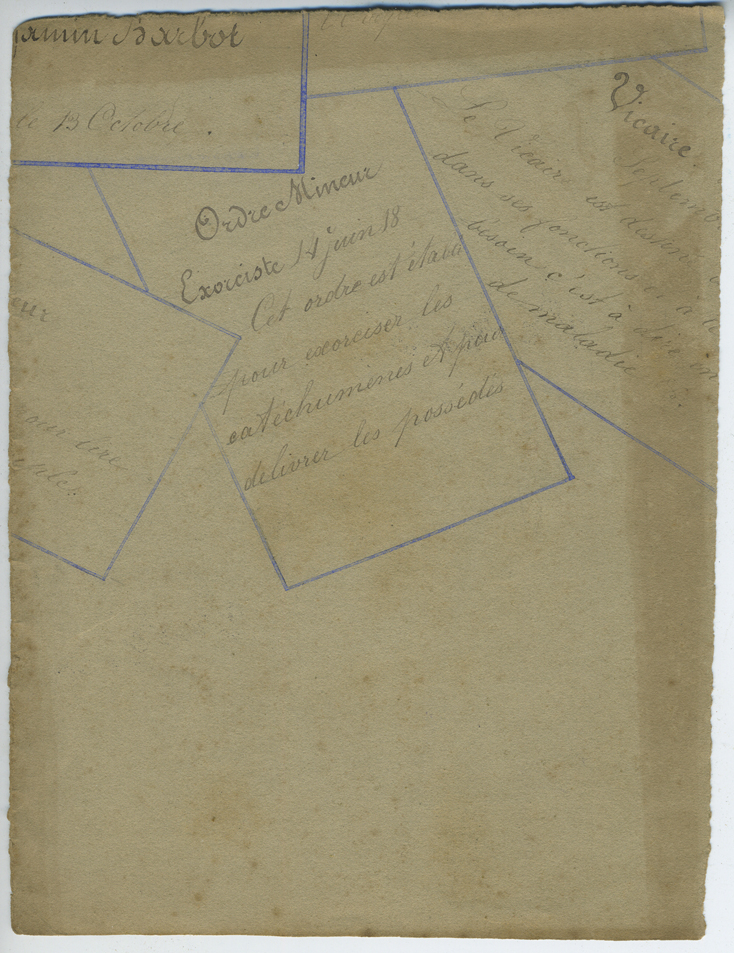 amin Barbot
ce 13 Octobre.
Ordre Mineur
Exorciste 14 juin 18
Cet ordre est établi
pour exorciser les
catéchumenes et pour
délivrer les possédés
Vicaire.
Septemb
Le Vicaire est destiné
dans ses fonctions et à
besoin c'est à dire en
de maladie
eur
our lire